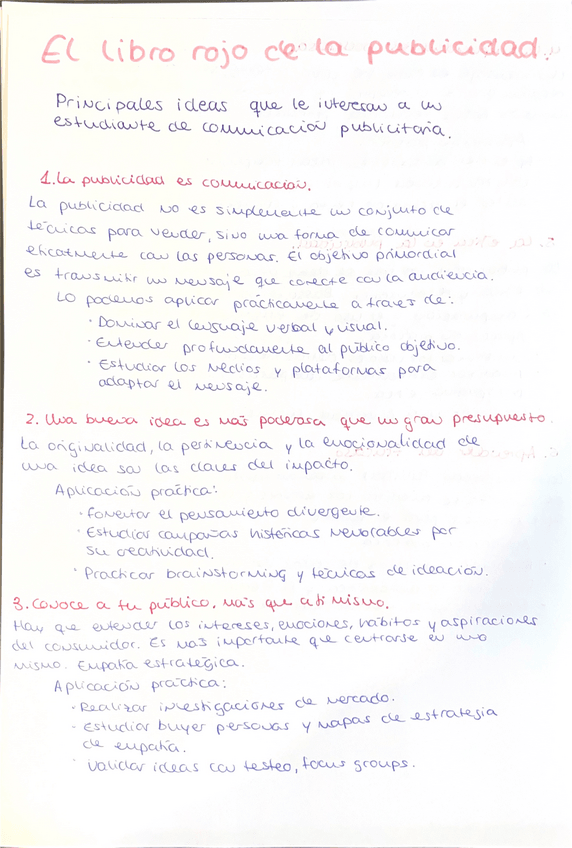 El libro rojo de la publicidad.
Principales ideas que le interesan a un
estudiante de comunicación publicitaria.
1. La publicidad es comunicación.
La publicidad no es simplemente un conjunto de
técnicas para vender, sino una forma de comunicar
eficazmente con las personas. El objetivo primordial
es transmitir un mensaje que conecte con la audiencia.
Lo podemos aplicar prácticamente a traves de:
· Dominar el lenguaje verbal y visual.
· Entender profundamente al público objetivo.
· Estudiar los medios y plataformas para
adaptar el mensaje.
2. Una buena idea es más poderosa que un gran presupuesto.
La originalidad, la pertinencia y la emocionalidad de
una idea son las claves del impacto.
Aplicación práctica:
· Fomentar el pensamiento divergente.
· Estudiar campañas históricas memorables por
su creatividad.
· Practicar brainstorming y técnicas de ideación.
3. Conoce a tu público, más que a ti mismo.
Hay que entender los intereses, emociones, hábitos y aspiraciones
del consumidor. Es más importante que centrarse en uno
mismo. Empatía estratégica.
Aplicación práctica:
· Realizar investigaciones de mercado.
· Estudiar buyer personas y mapas de estrategia
de empatía.
· Validar ideas con testeo, focus groups.